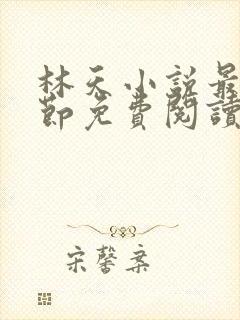 林天小説最
節免費閱讀
宋馨案